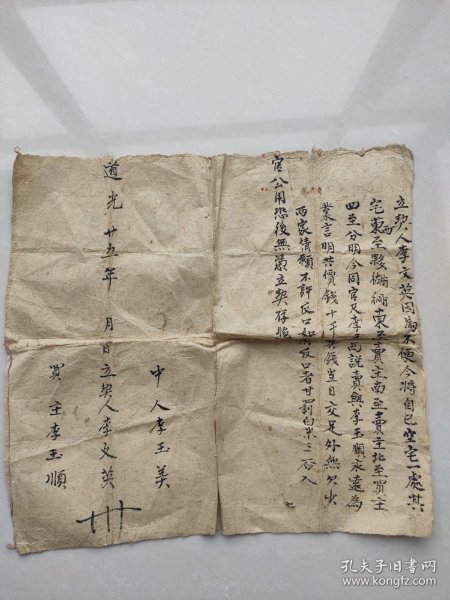 立契人李文英因為不便今將自己空宅一處其
宅東至夥衚衕東至賣主南至賣主北至買主
西
四至分明今同官尺李 說賣與李玉順永遠為
業言明共價錢十千 錢當日交足外無欠少
两家情願不許反口如反口者甘罰白米三石入
官公用恐後無憑立契存照
中人李玉美
道光廿五年 月 日立契人李文英
買主李玉順
孔夫子旧书网
www.kongfz.com